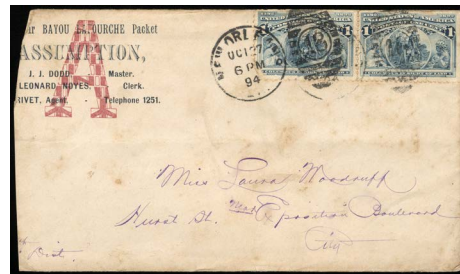 BAYOU LAFOURCHE Packet
ASSUMPTION,
J. J. DODD, Master.
LEONARD NOYES, Clerk.
RIVET, Agent. Telephone 1251.
A
NEW ORLEANS
OCT 27
6 PM
94
1 1
Miss Laura Woodruff
Hurst St. near Exposition Boulevard
City
Dist.